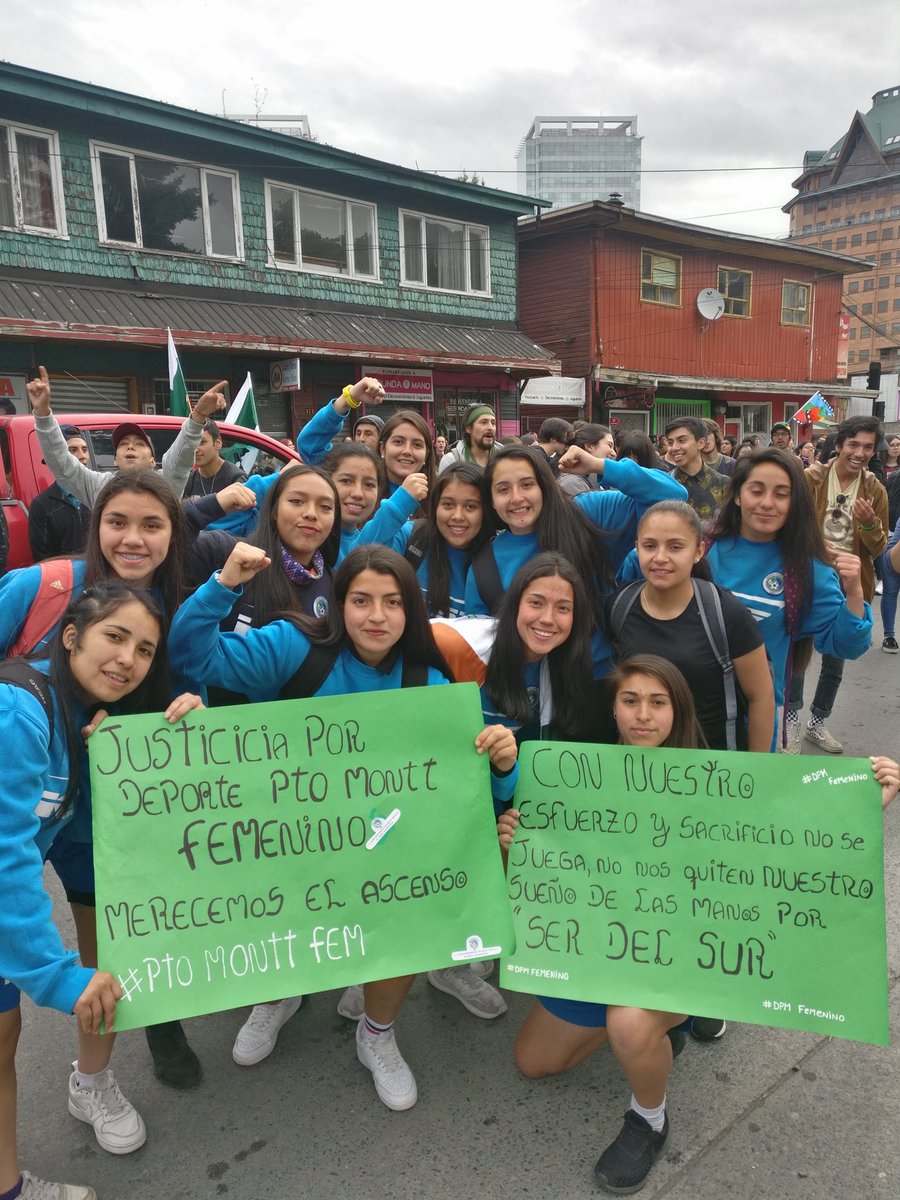 SEGUNDA MANO
JUSTICICIA POR
DEPORTE PTO MONTT
FEMENINO
MERECEMOS EL ASCENSO
#PTO MONTT FEM
CON NUESTRO
ESFUERZO Y SACRIFICIO NO SE
JUEGA, NO NOS QUITEN NUESTRO
SUEÑO DE LAS MANOS POR
"SER DEL SUR"
#DPM
FEMENINO
#DPM FEMENINO
#DPM FEMENINO